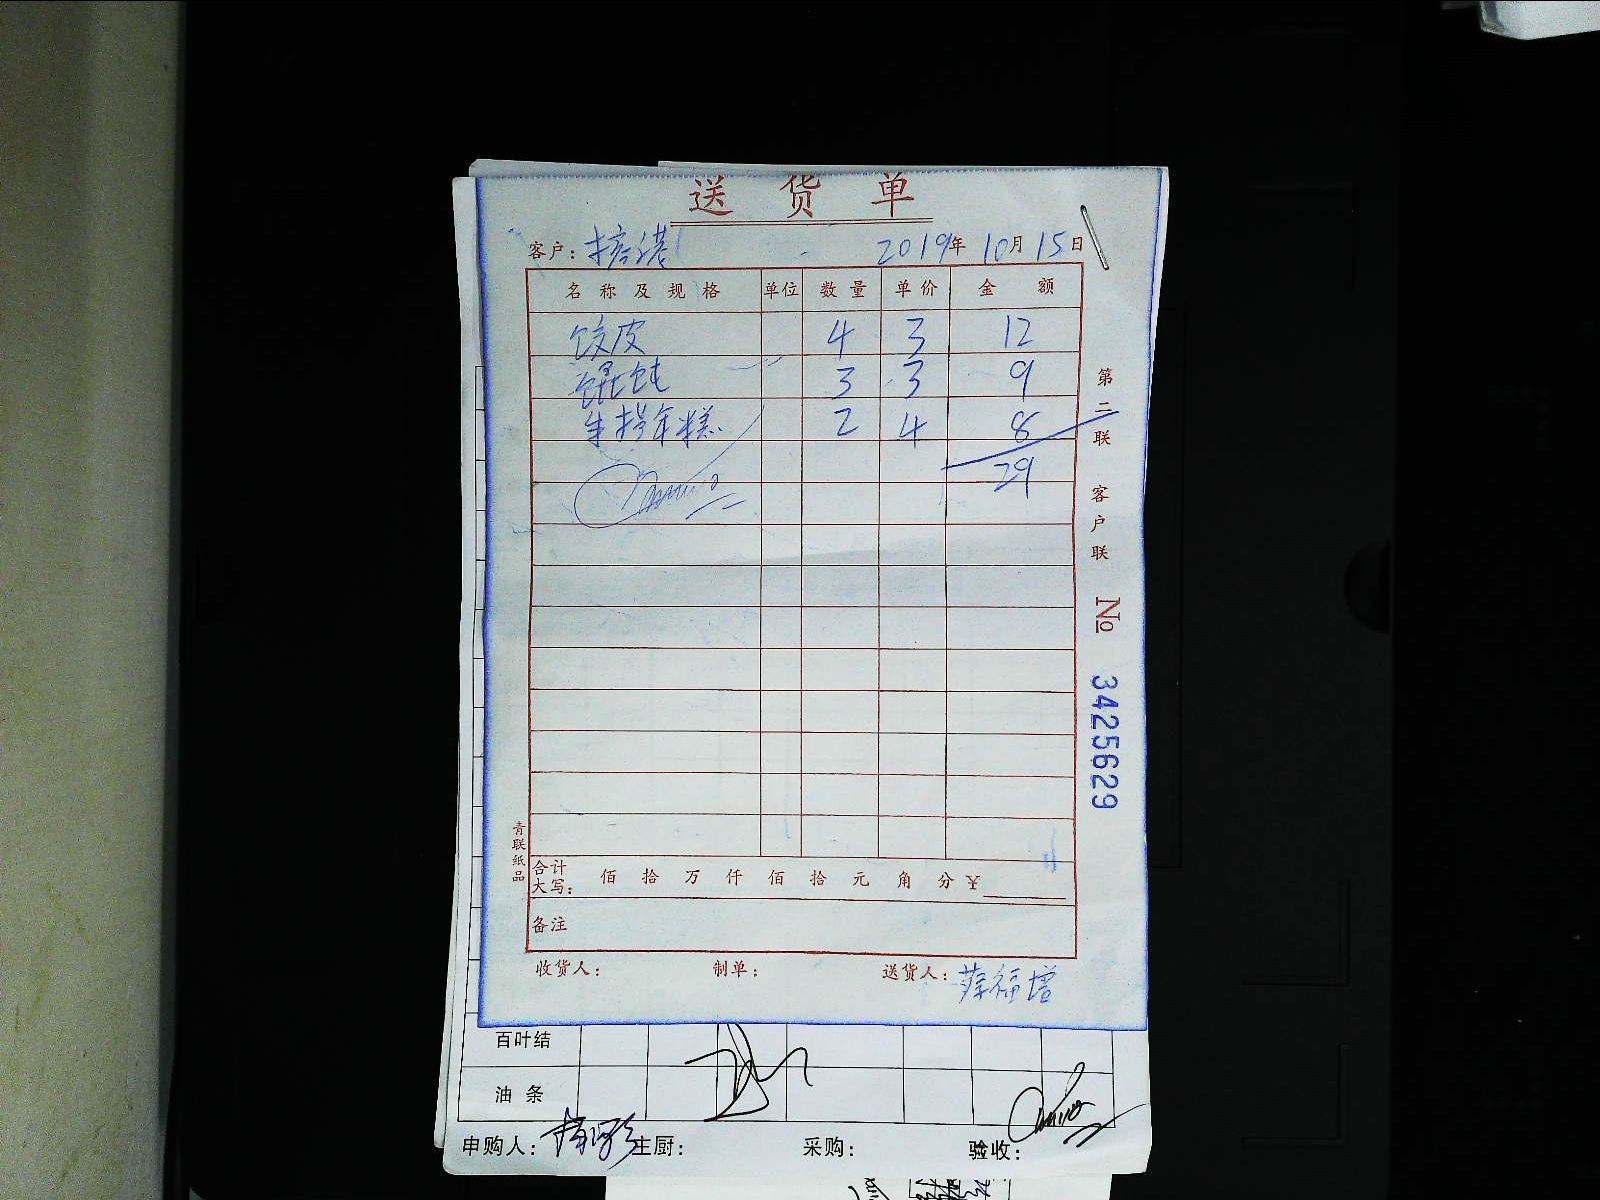 送货单
客户： 2019年10月15日
名称及规格 单位 数量 单价 金额
饺皮 4 3 12
馄饨 3 3 9
年糕 2 4 8
29
第二联 客户联
No 3425629
青联纸品
合计大写： 佰 拾 万 仟 佰 拾 元 角 分 ¥
备注
收货人： 制单： 送货人：薛福增
百叶结
油条
申购人： 主厨： 采购： 验收：